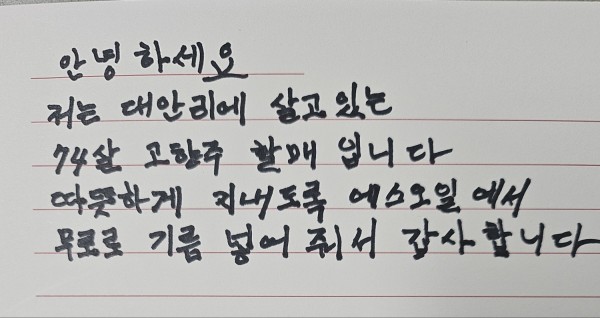 안녕하세요
저는 대안리에 살고있는
74살 고향주 할매 입니다
따뜻하게 지내도록 에스오일에서
무료로 기름 넣어 줘서 감사합니다